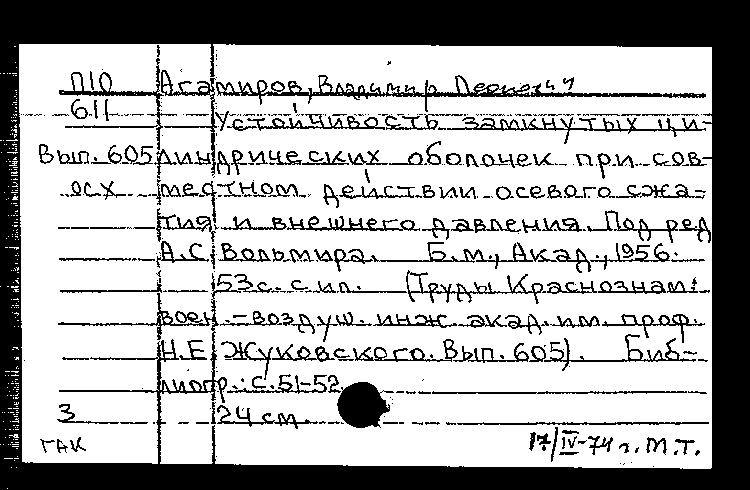 П10 Агамиров, Владимир Леонович
611 Устойчивость замкнутых ци-
Вып. 605 линдрических оболочек при сов-
осх местном действии осевого сжа-
тия и внешнего давления. Под ред
А.С Вольмира. Б.м., Акад., 1956.
53 с. с ил. (Труды Краснознам.
воен.-воздуш. инж. акад. им. проф.
Н.Е Жуковского. Вып. 605). Биб-
лиогр.: с. 51-52
3 24 см.
ГАК 17/IV-74 г. М.Т.